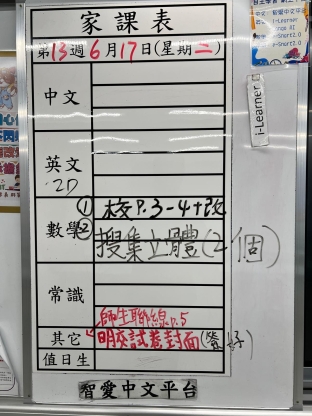 家課表
第13週6月17日(星期二)
中文
英文
2D
數學
① 校P.3-4+改
② 搜集立體(2個)
常識
師生聯線P.5
其它
明交試卷封面(簽好)
值日生
智愛中文平台
i-Learner